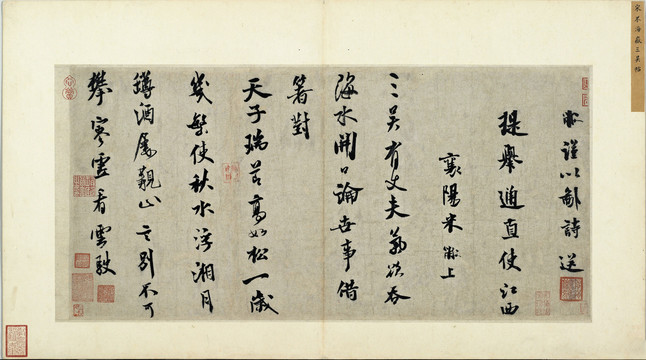 宋米海嶽三吳帖
黻謹以鄙詩送
提舉通直使江西
襄陽米黻上
三吳有丈夫氣欲吞
海水開口論世事借
箸對
天子瑞節高如松一歲
幾繁使秋水浮湘月
罇酒屢觀山言別不可
攀寒看雲駛